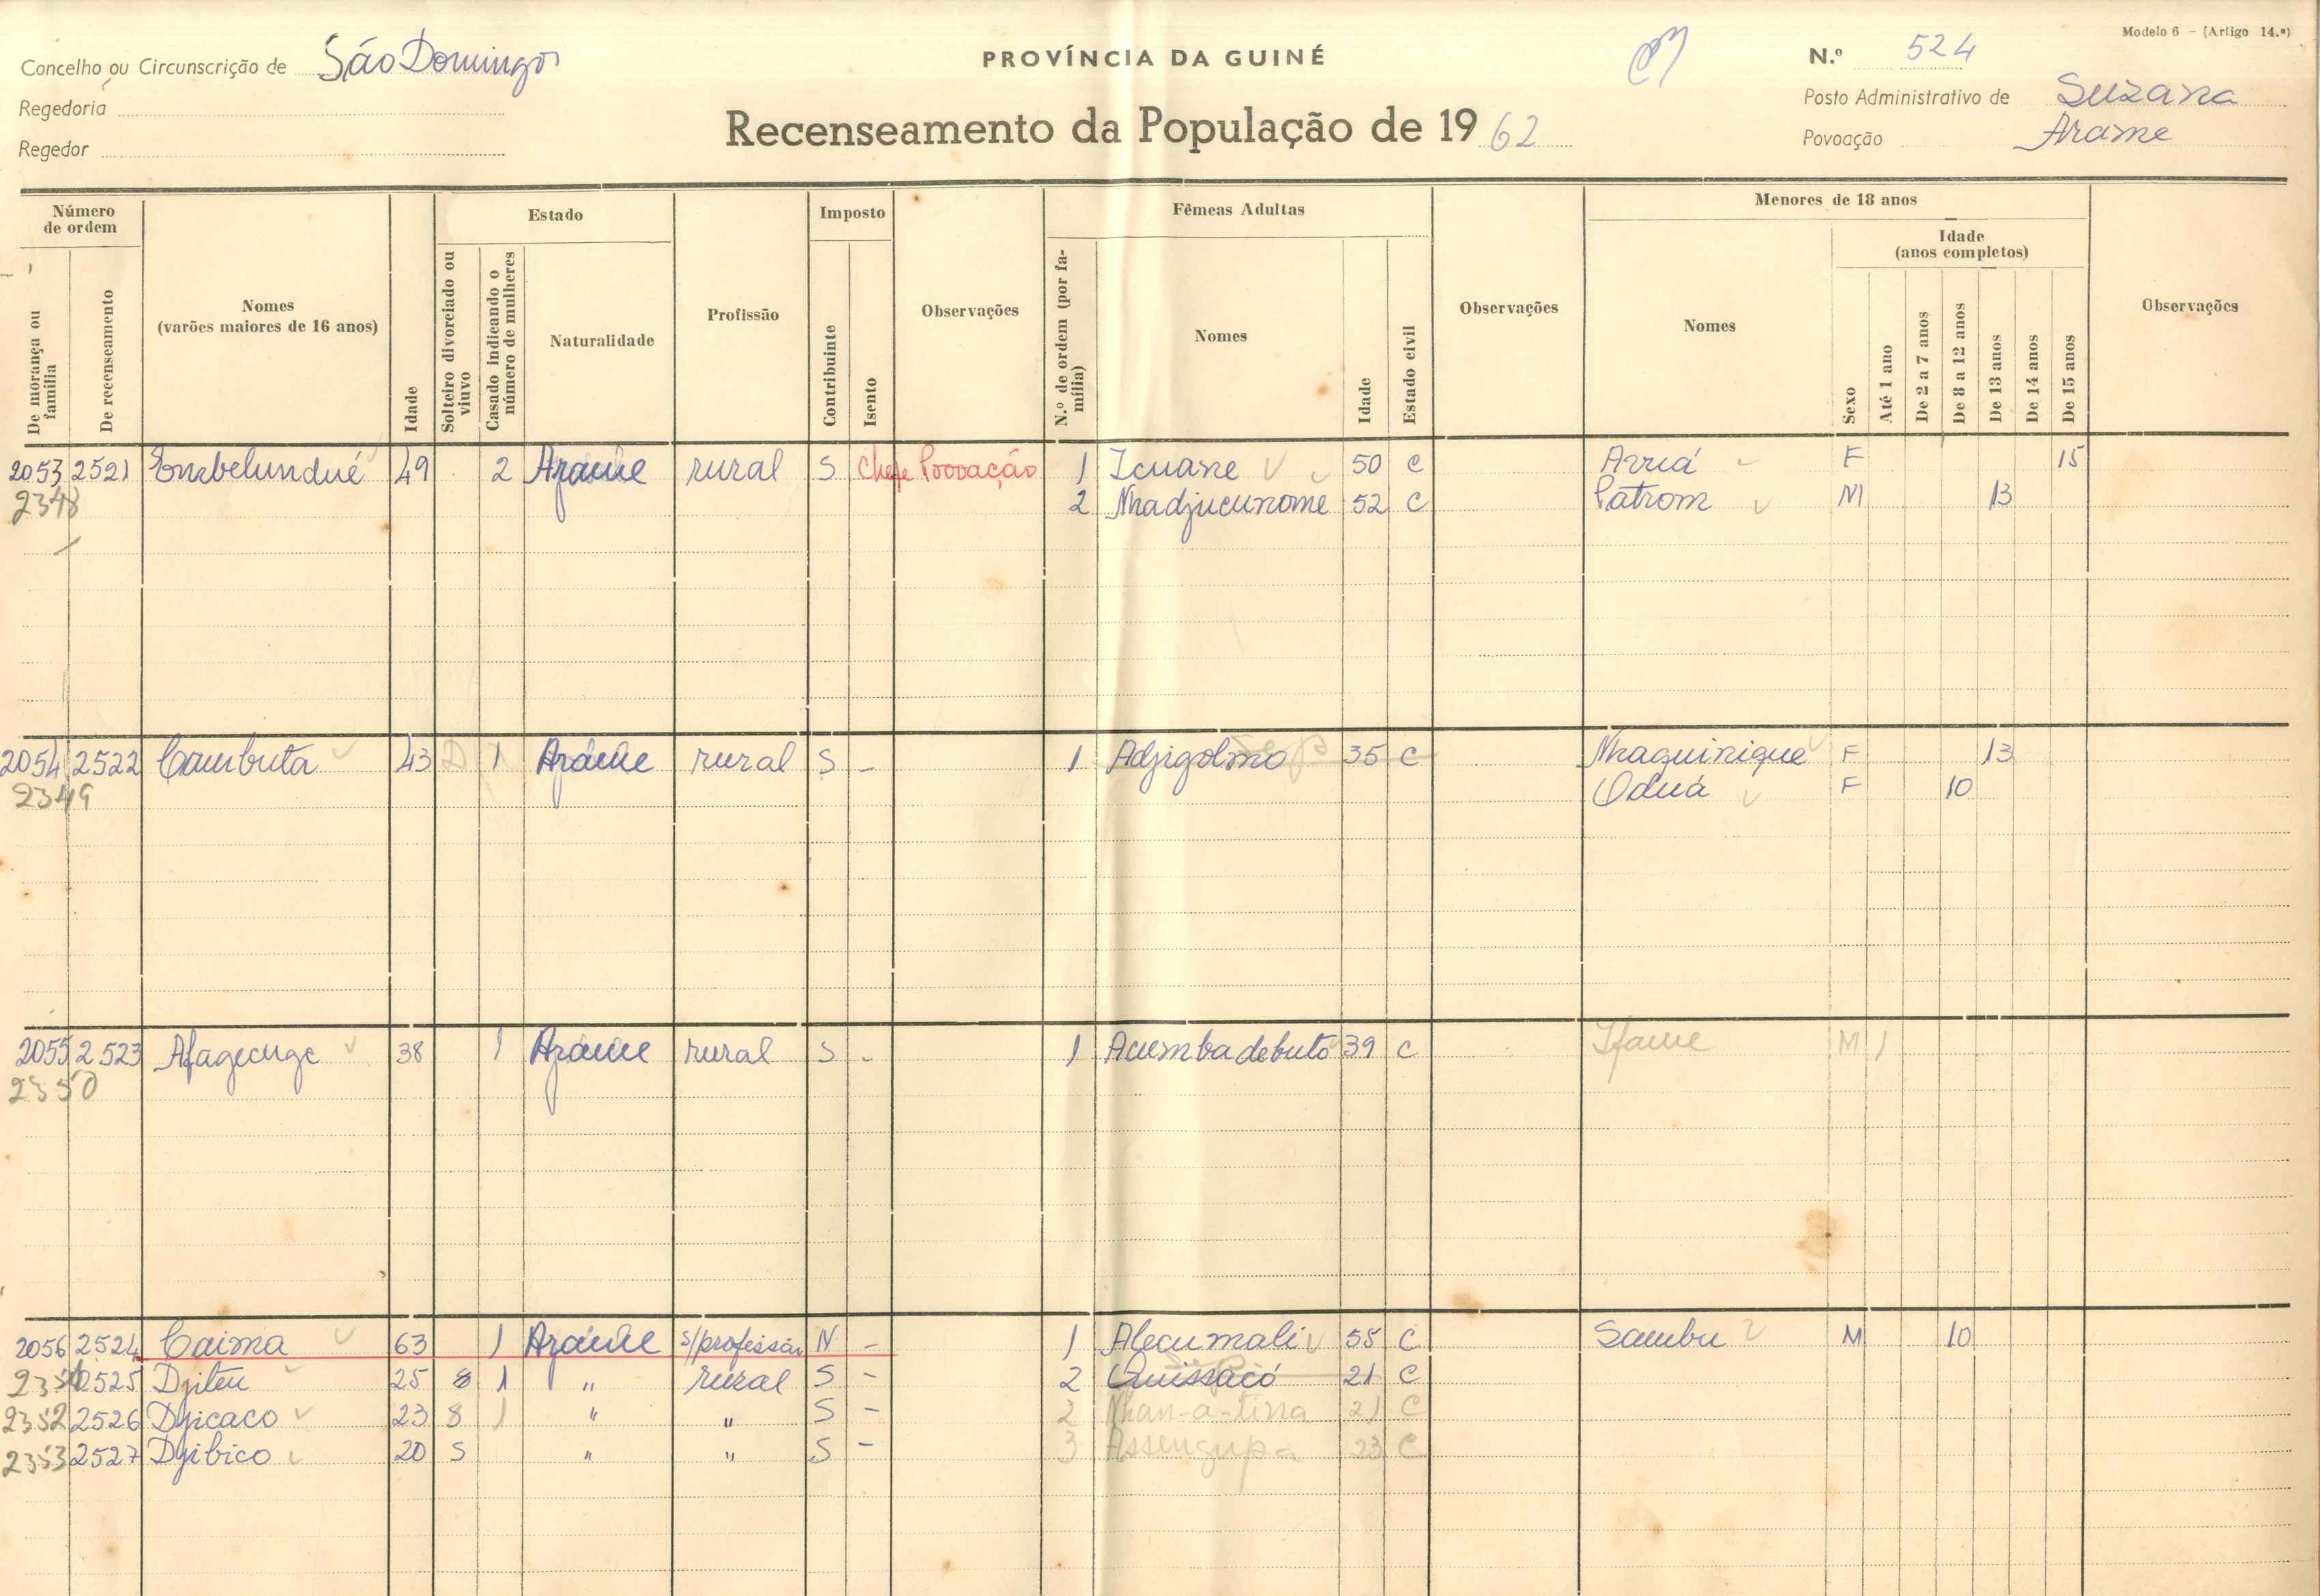 Modelo 6 - (Artigo 14.º)
Concelho ou Circunscrição de São Domingos
PROVÍNCIA DA GUINÉ
N.º 524
Regedoria
Recenseamento da População de 1962
Posto Administrativo de Suzana
Regedor
Povoação Arame
Número de ordem
De morança ou família
De recenseamento
Nomes
(varões maiores de 16 anos)
Idade
Estado
Solteiro divorciado ou viuvo
Casado indicando o número de mulheres
Naturalidade
Profissão
Imposto
Contribuinte
Isento
Observações
Fêmeas Adultas
N.º de ordem (por família)
Nomes
Idade
Estado civil
Observações
Menores de 18 anos
Nomes
Sexo
Idade
(anos completos)
Até 1 ano
De 2 a 7 anos
De 8 a 12 anos
De 13 anos
De 14 anos
De 15 anos
Observações
2053 2521 Embelundué 49 2 Arame rural S Chefe Povoação 1 Icuane 50 C Arriá F 15
2348 2 Nhadjucunome 52 C Patrom M 13
2054 2522 Cambuta 43 D 1 Arame rural S - 1 Adjigolmo 35 C Nhaquirique F 13
2349 Oduá F 10
2055 2523 Afagecuge 38 1 Arame rural S - 1 Acumbadebuto 39 C Ifame M 1
2350
2056 2524 Caima 63 1 Arame s/profissão N - 1 Alecumali 55 C Sambu M 10
2351 2525 Djiteu 25 S 1 " rural S - 2 Quissacó 21 C
2352 2526 Djicaco 23 S 1 " " S - 2 Nhan-a-tina 21 C
2353 2527 Djibico 20 S " " S - 3 Assengupa 23 C